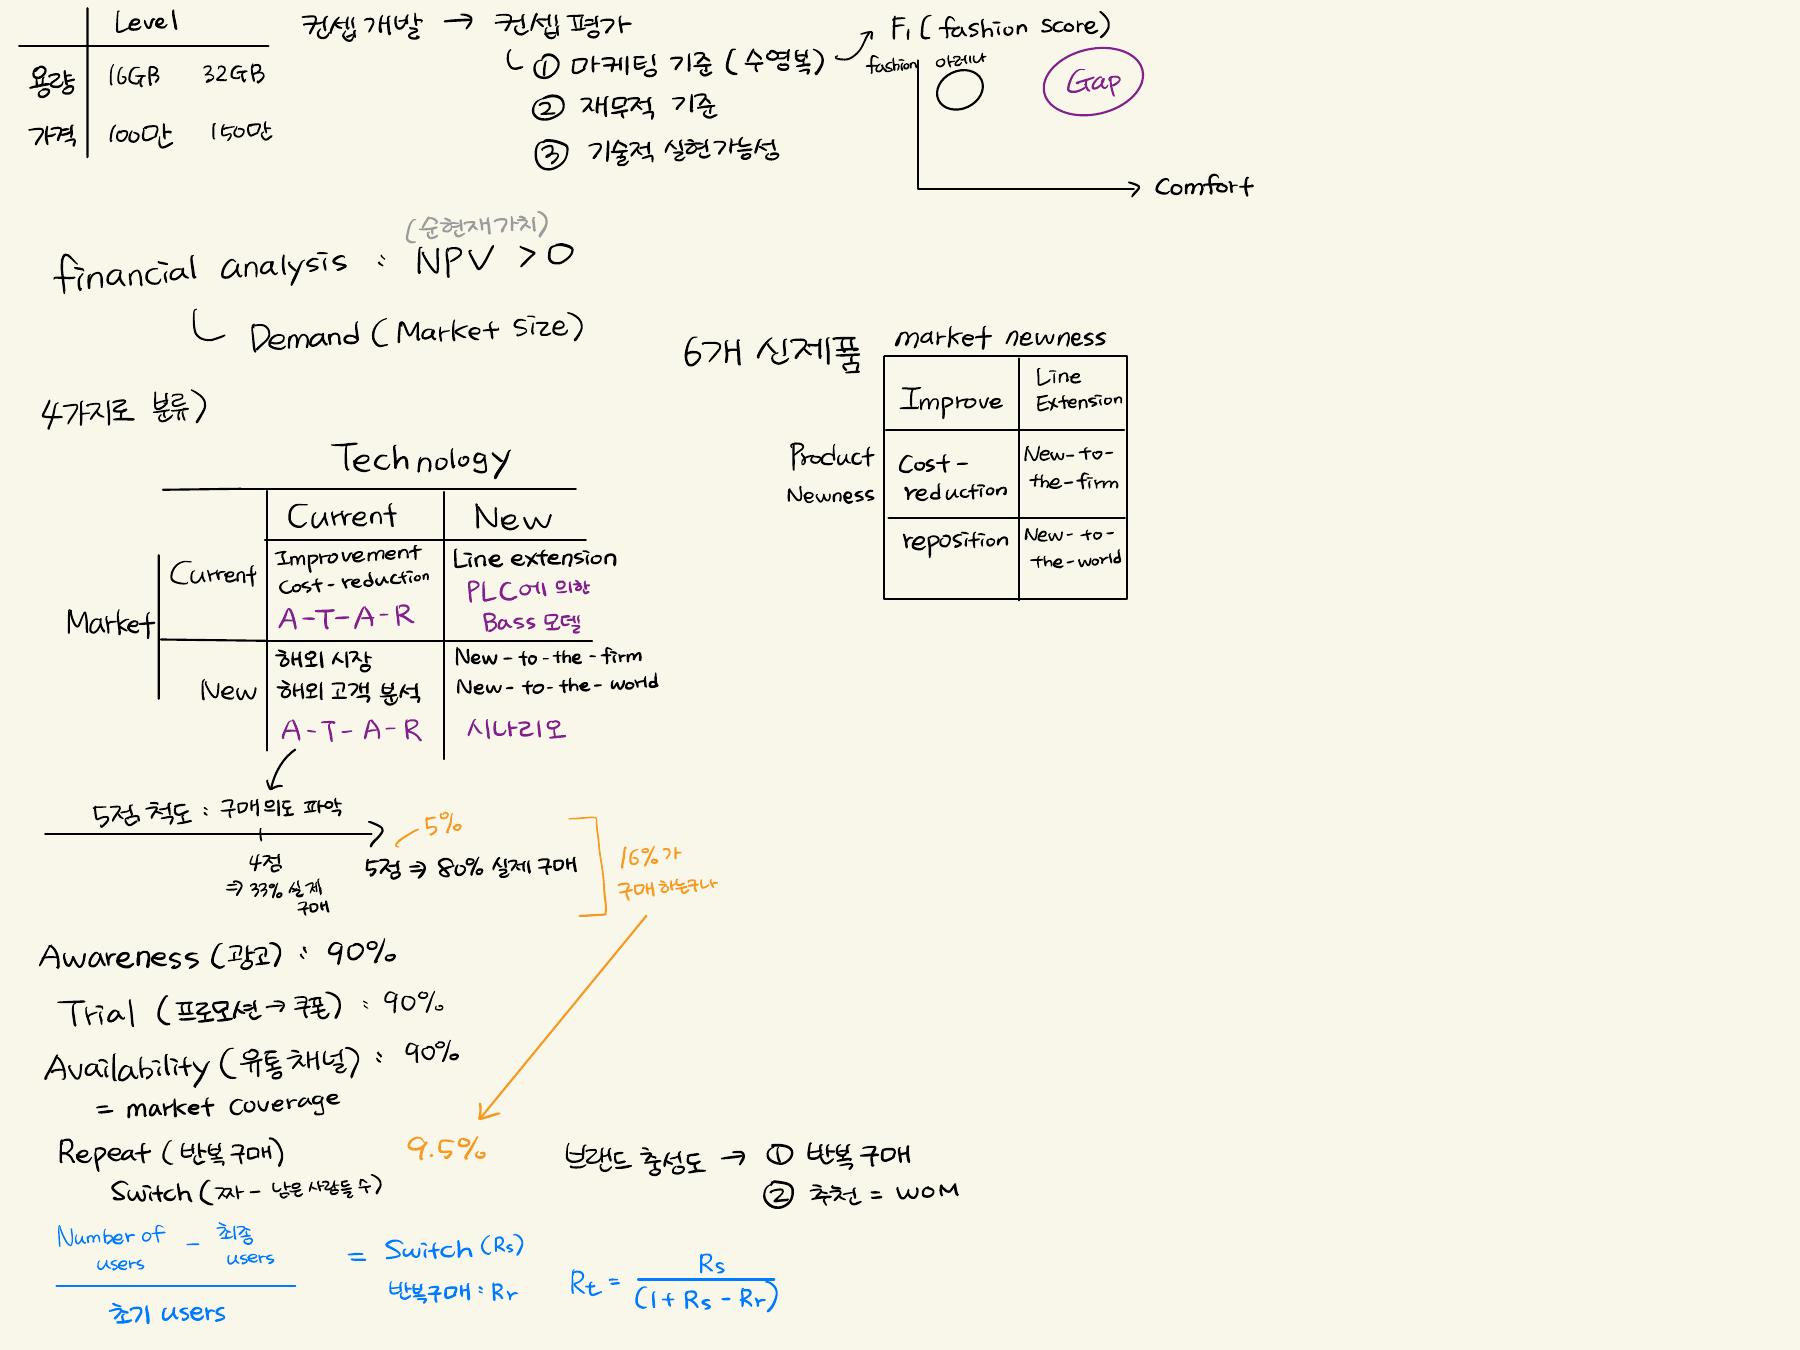 Level
용량 16GB 32GB
가격 100만 150만
컨셉 개발 → 컨셉 평가
① 마케팅 기준 (수영복)
② 재무적 기준
③ 기술적 실현가능성
F₁ (fashion score)
fashion 아레나
Gap
Comfort
(순현재가치)
financial analysis : NPV > 0
Demand (Market size)
6개 신제품
market newness
Product
Newness
Improve
Line
Extension
Cost-
reduction
New-to-
the-firm
reposition
New-to-
the-world
4가지로 분류)
Technology
Current New
Market
Current
Improvement
Cost-reduction
A-T-A-R
Line extension
PLC에 의한
Bass 모델
New
해외 시장
해외 고객 분석
A-T-A-R
New-to-the-firm
New-to-the-world
시나리오
5점 척도 : 구매의도 파악
4점
⇒ 33% 실제
구매
5%
5점 ⇒ 80% 실제 구매
16%가
구매 하는구나
Awareness (광고) : 90%
Trial (프로모션 → 쿠폰) : 90%
Availability (유통채널) : 90%
= market coverage
Repeat (반복구매)
9.5%
Switch (짜 - 남은 사람들 수)
브랜드 충성도 → ① 반복구매
② 추천 = WOM
Number of users - 최종 users
초기 users
= Switch (Rs)
반복구매 : Rr
Rt = Rs / (1 + Rs - Rr)